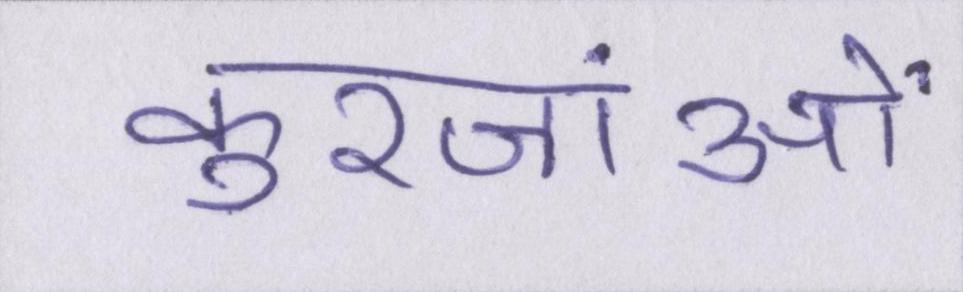 कुरजांओं